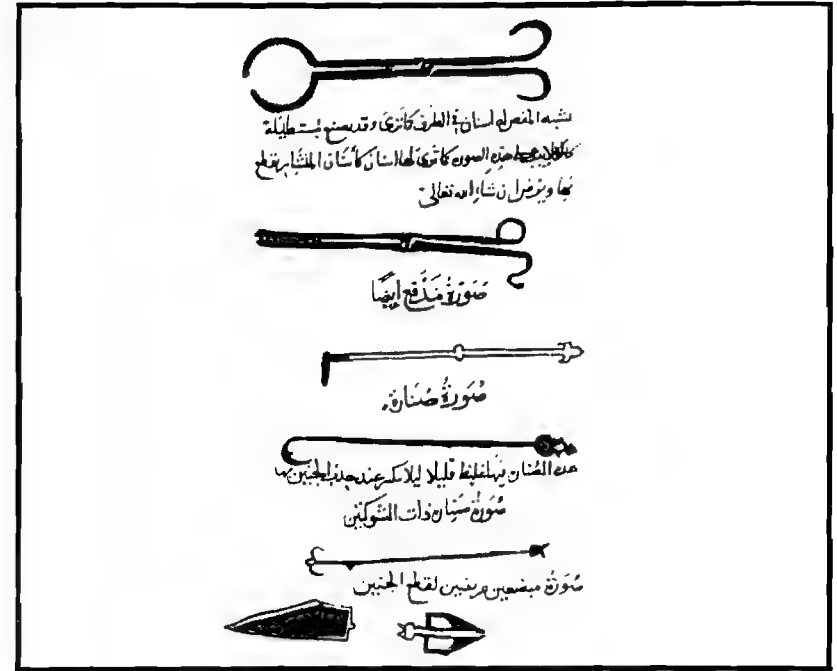 يشبه المقص له اسنان في الطرف كما ترى وقد يصنع مستطيلة
هذه الصوره كما ترى لها اسنان كأسنان المنشار يقطع
بها ويرض ان شاء الله تعالى
صورة مدفع ايضا
صورة صنارة
هذه الصنارة فيها غلظ قليلا ليلا تنكسر عند جذب الجنين بها
صورة صنارة ذات الشوكتين
صورة مبضعين عريضين لقطع الجنين